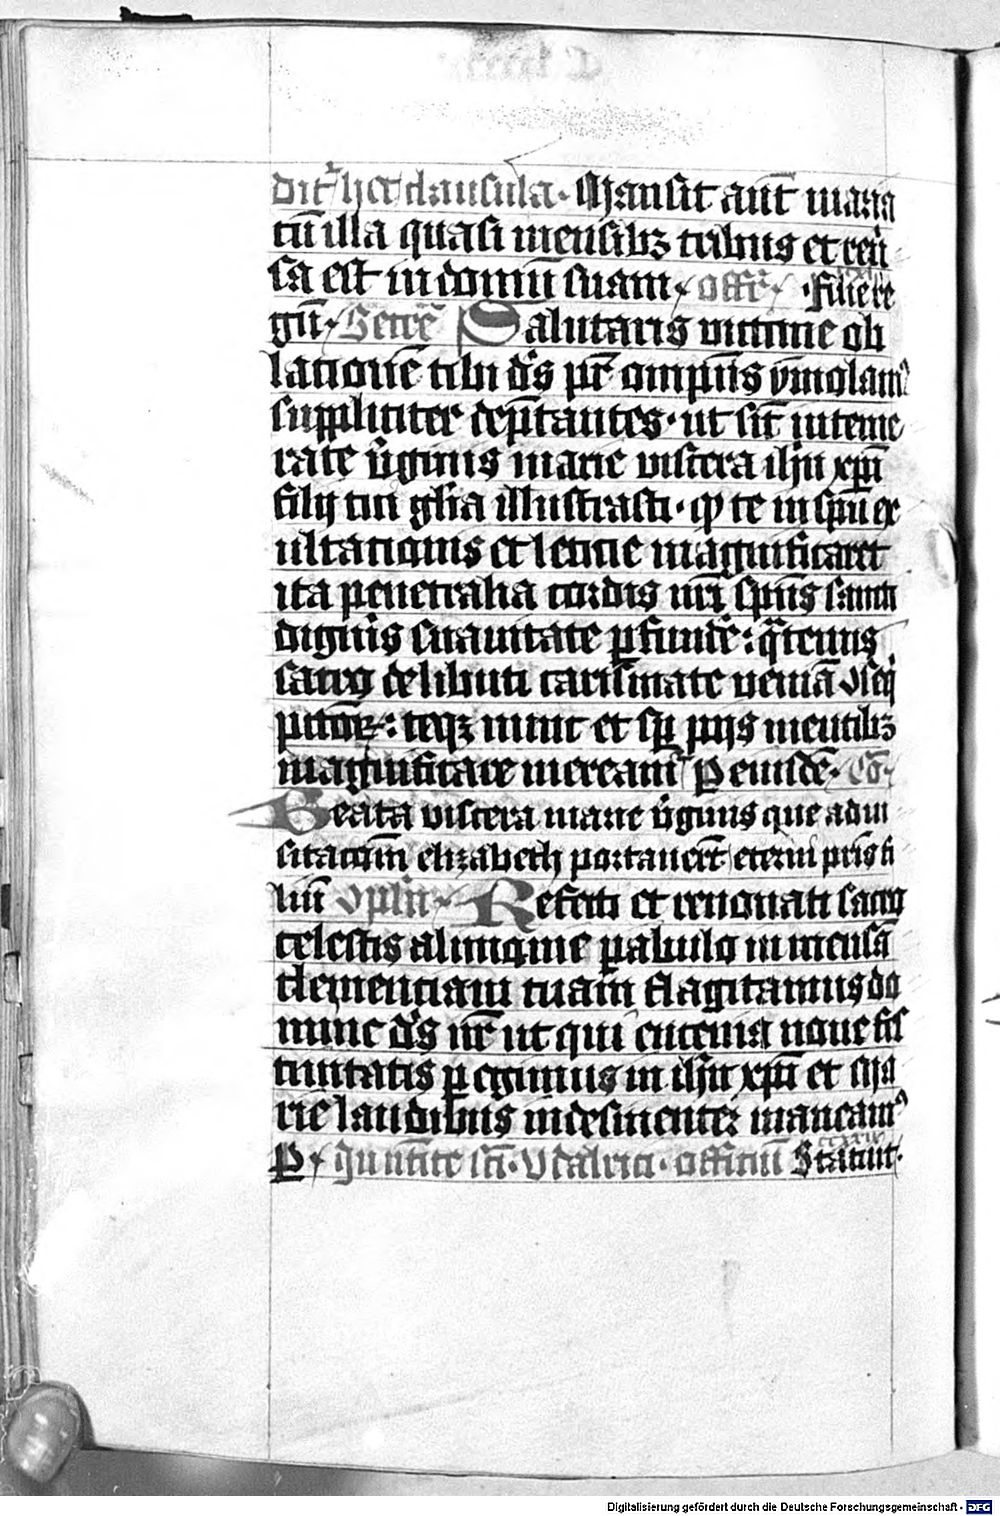 dicit᷑ hec clausula. Mansit aut̄ maria
cū illa quasi mensibꝫ tribus et reu᷑
sa est in domū suam. offr̄. Filie re
gū. Secre᷑ Salutaris victime ob
lationē tibi ds̄ pr̄ omp̄ns ymolamꝰ
suppliciter dep̄cantes. ut sic̄ inteme
rate v᷑ginis marie viscera ih̄u xp̄i
filij tui gl̄ia illustrasti. qͥ te in sp̄u ex
ultationis et leticie magnificaret
ita penetralia cordis nr̄i sp̄us sancti
digneris suauitate ꝑfunde᷑: qͣtenus
sacro delibuti carismate veniā
teqꝫ nunc et sp̄ pijs mentibꝫ
magnificare mereamꝰ Per eiusdē. Co᷑.
Beata viscera marie v᷑ginis que a dni
elizabeth portauerūt eterni pr̄is fi
liū Refecti et renouati sacro
celestis alimonie pabulo in mensā
clemenciam tuam flagitamus do
mine ds̄ nr̄ ut qui encenia noue fes
tiuitatis ꝑegimus in ih̄u xp̄i et Ma
rie laudibus indesinenter maneamꝰ
P. In nc̄te sc̄i. Vdalrici. officiū Statuit.
Digitalisierung gefördert durch die Deutsche Forschungsgemeinschaft - DFG